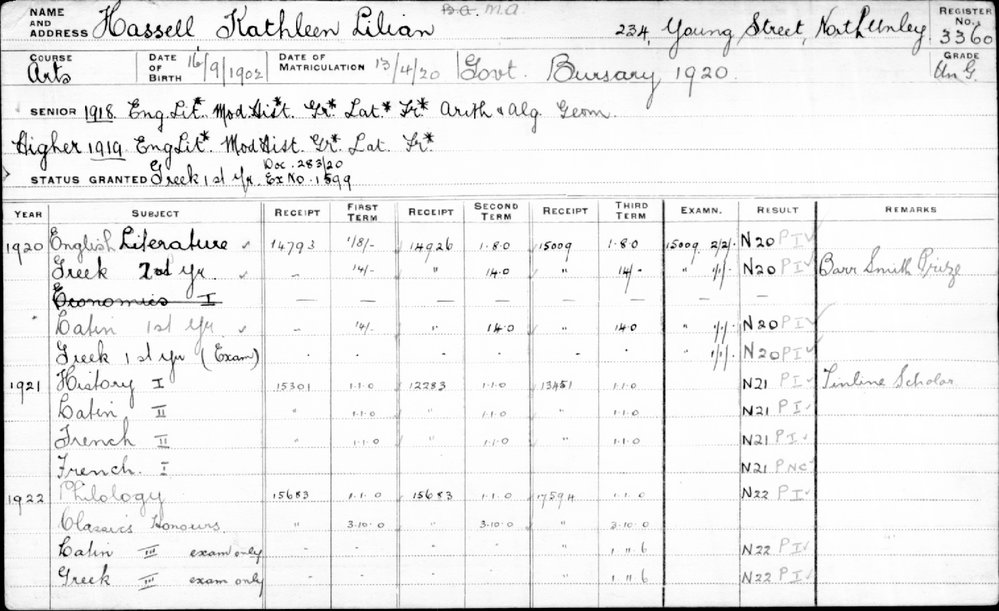 B.A. M.A
NAME AND ADDRESS Hassell Kathleen Lilian 234, Young Street, North Unley REGISTER No. 3360
COURSE Arts DATE OF BIRTH 16/9/1902 DATE OF MATRICULATION 13/4/20 Govt. Bursary 1920. GRADE Un G.
SENIOR 1918. Eng. Lit* Mod. Hist. Gr* Lat* Fr* Arith & Alg. Geom.
Higher 1919 Eng Lit* Mod Hist. Gr* Lat. Fr*
STATUS GRANTED Greek 1st Yr. Doc. 283/20 Ex No. 1599
YEAR SUBJECT RECEIPT FIRST TERM RECEIPT SECOND TERM RECEIPT THIRD TERM EXAMN. RESULT REMARKS
1920 English Literature ✓ 14793 1/8/- 14926 1.8.0 15009 1.8.0 15009 2/2/- N20 P I ✓
Greek 2nd Yr ✓ - 14/- " 14.0 " 14/- " 1/1/- N20 P I ✓ Barr Smith Prize
Economics I — — — — — — — —
Latin 1st Yr ✓ - 14/- " 14.0 14.0 " 1/1/- N20 P I ✓
Greek 1st Yr (Exam) . . . . . . 1/1/- N20 P I ✓
1921 History I 15301 1.1.0 12283 1.1.0 13451 1.1.0 N21 P I ✓ Tinline Scholar
Latin II " 1.1.0 " 1.1.0 " 1.1.0 N21 P I ✓
French II " 1.1.0 " 1.1.0 " 1.1.0 N21 P I ✓
French. I N21 P NC ✓
1922 Philology 15683 1.1.0 15683 1.1.0 17594 1.1.0 N22 P I ✓
Classics Honours. " 3.10.0 " 3.10.0 " 3.10.0
Latin III exam only . . . . " 1 " 6 N22 P I ✓
Greek III exam only . . . . " 1 " 6 N22 P I ✓